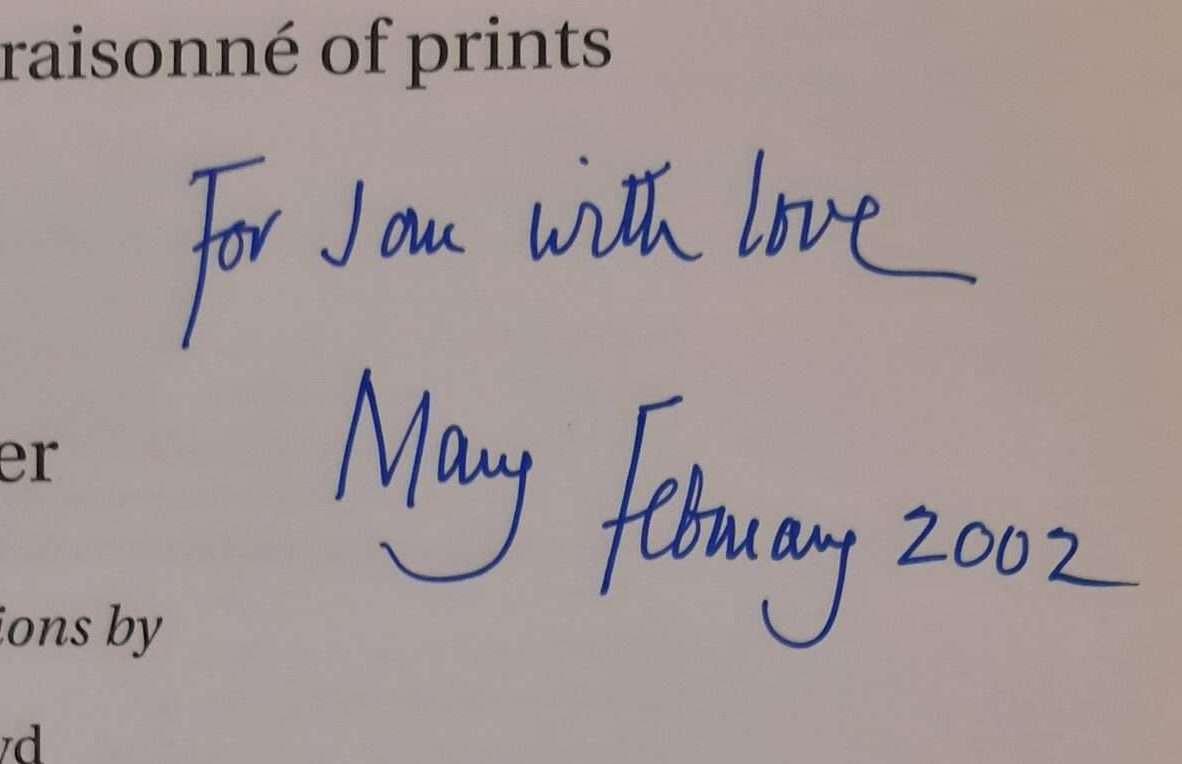 raisonné of prints
For Jane with love
er
Mary February 2002
ions by
yd